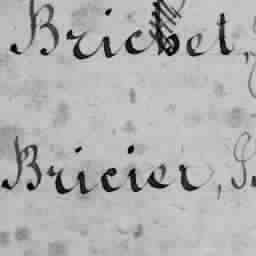 Bricbet,
Bricier, S